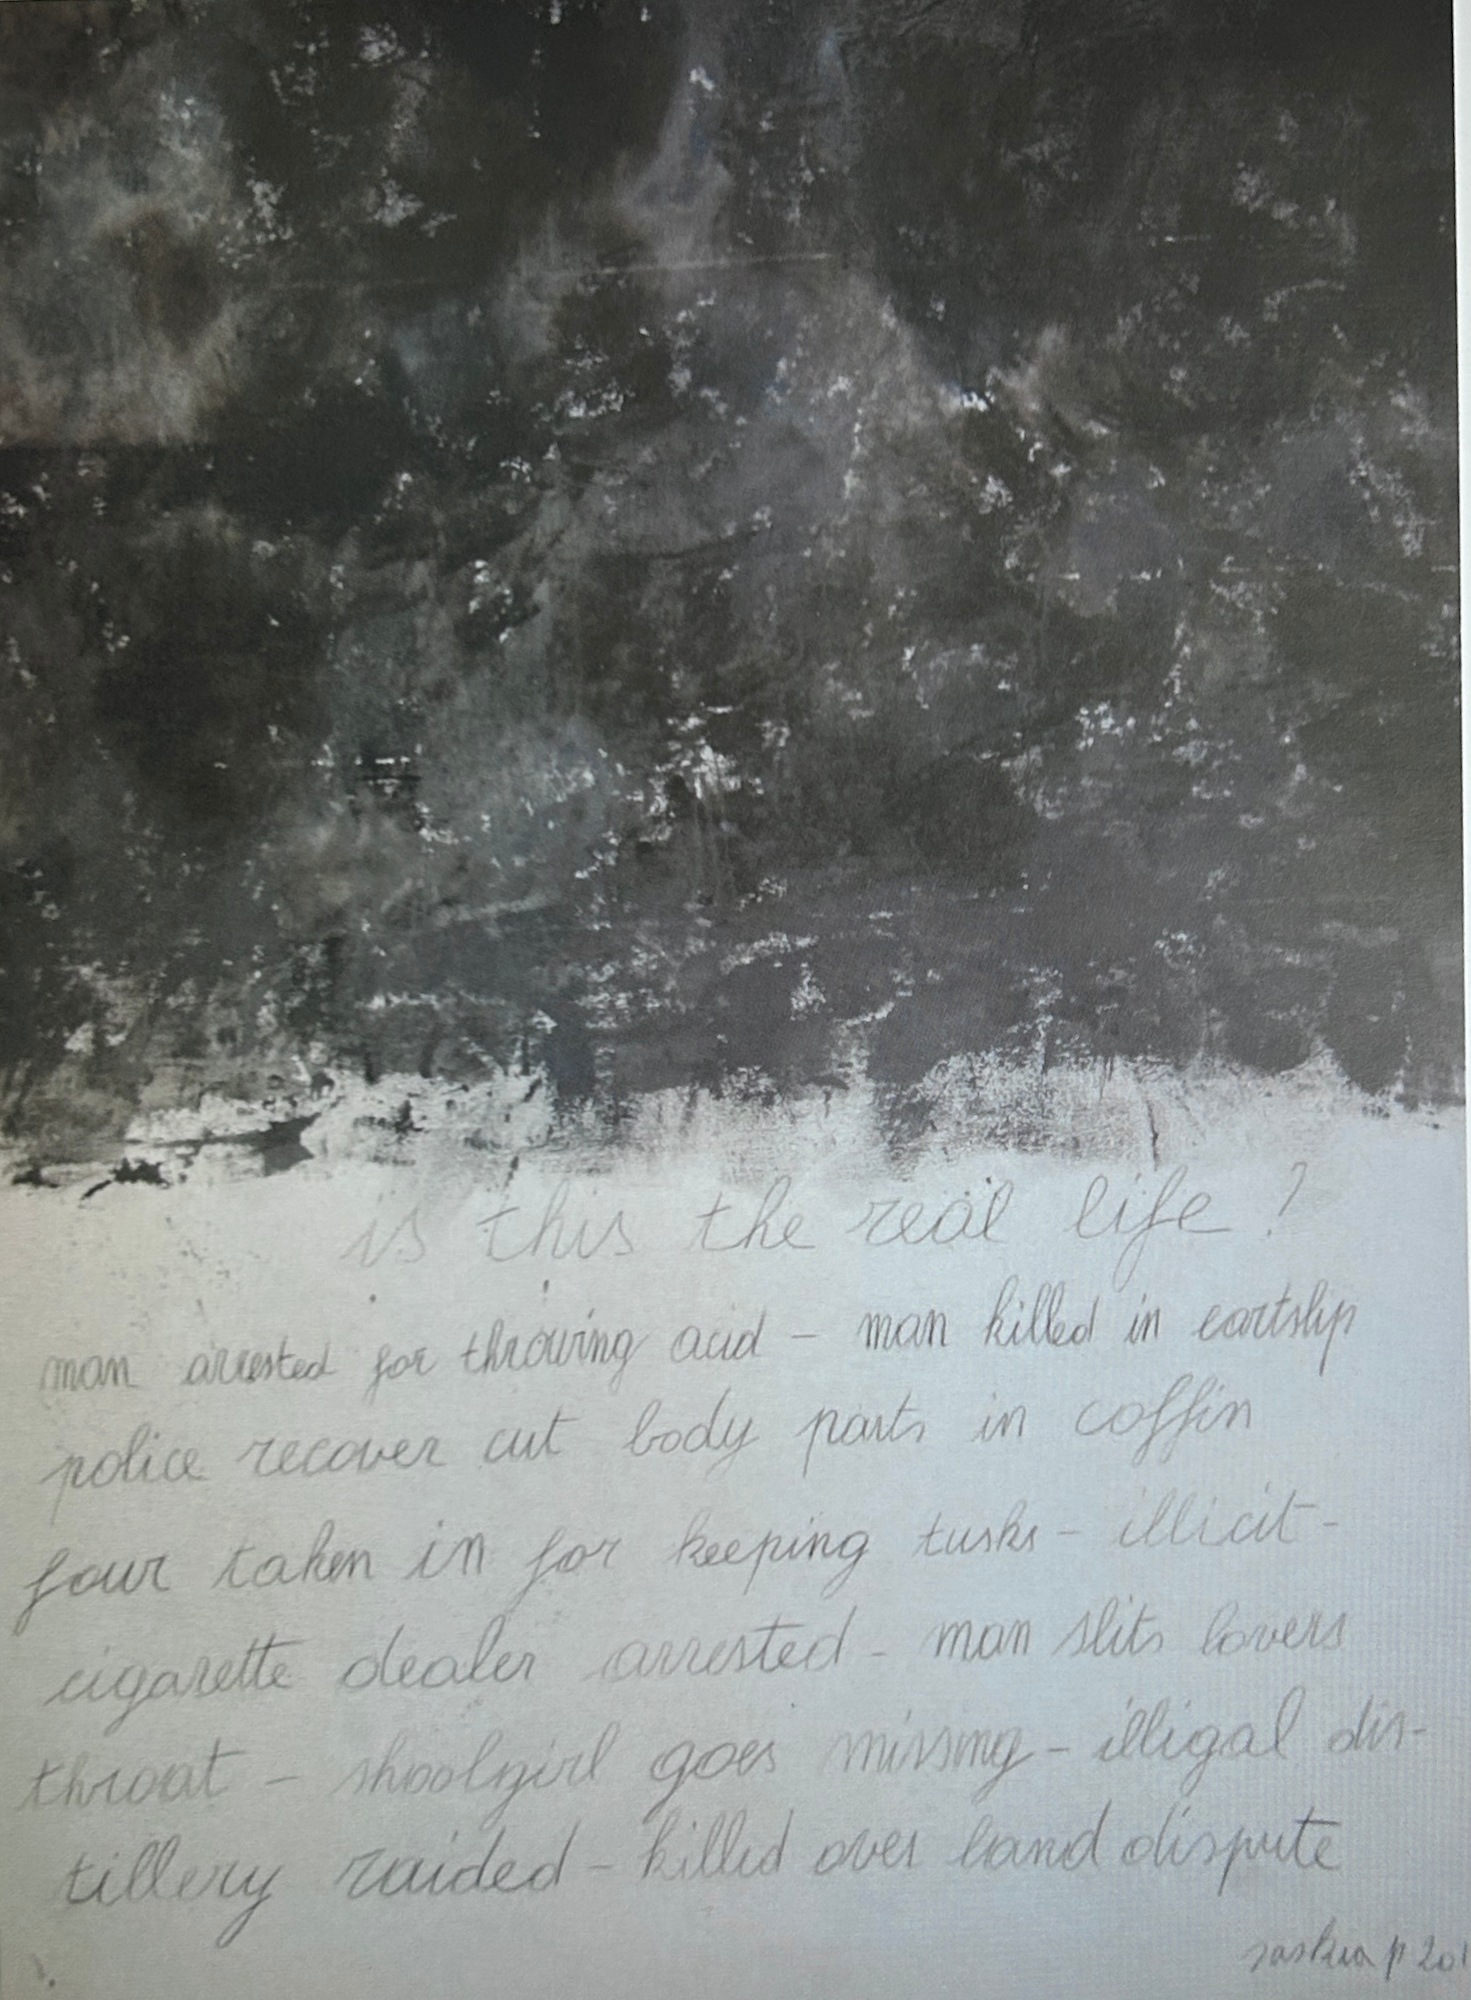 is this the real life?
man arrested for throwing acid – man killed in eartslip
police recover cut body parts in coffin
four taken in for keeping tusks – illicit -
cigarette dealer arrested – man slits lovers
throat – shoolgirl goes missing – illigal dis-
tillery raided – killed over land dispute
saskia p 201